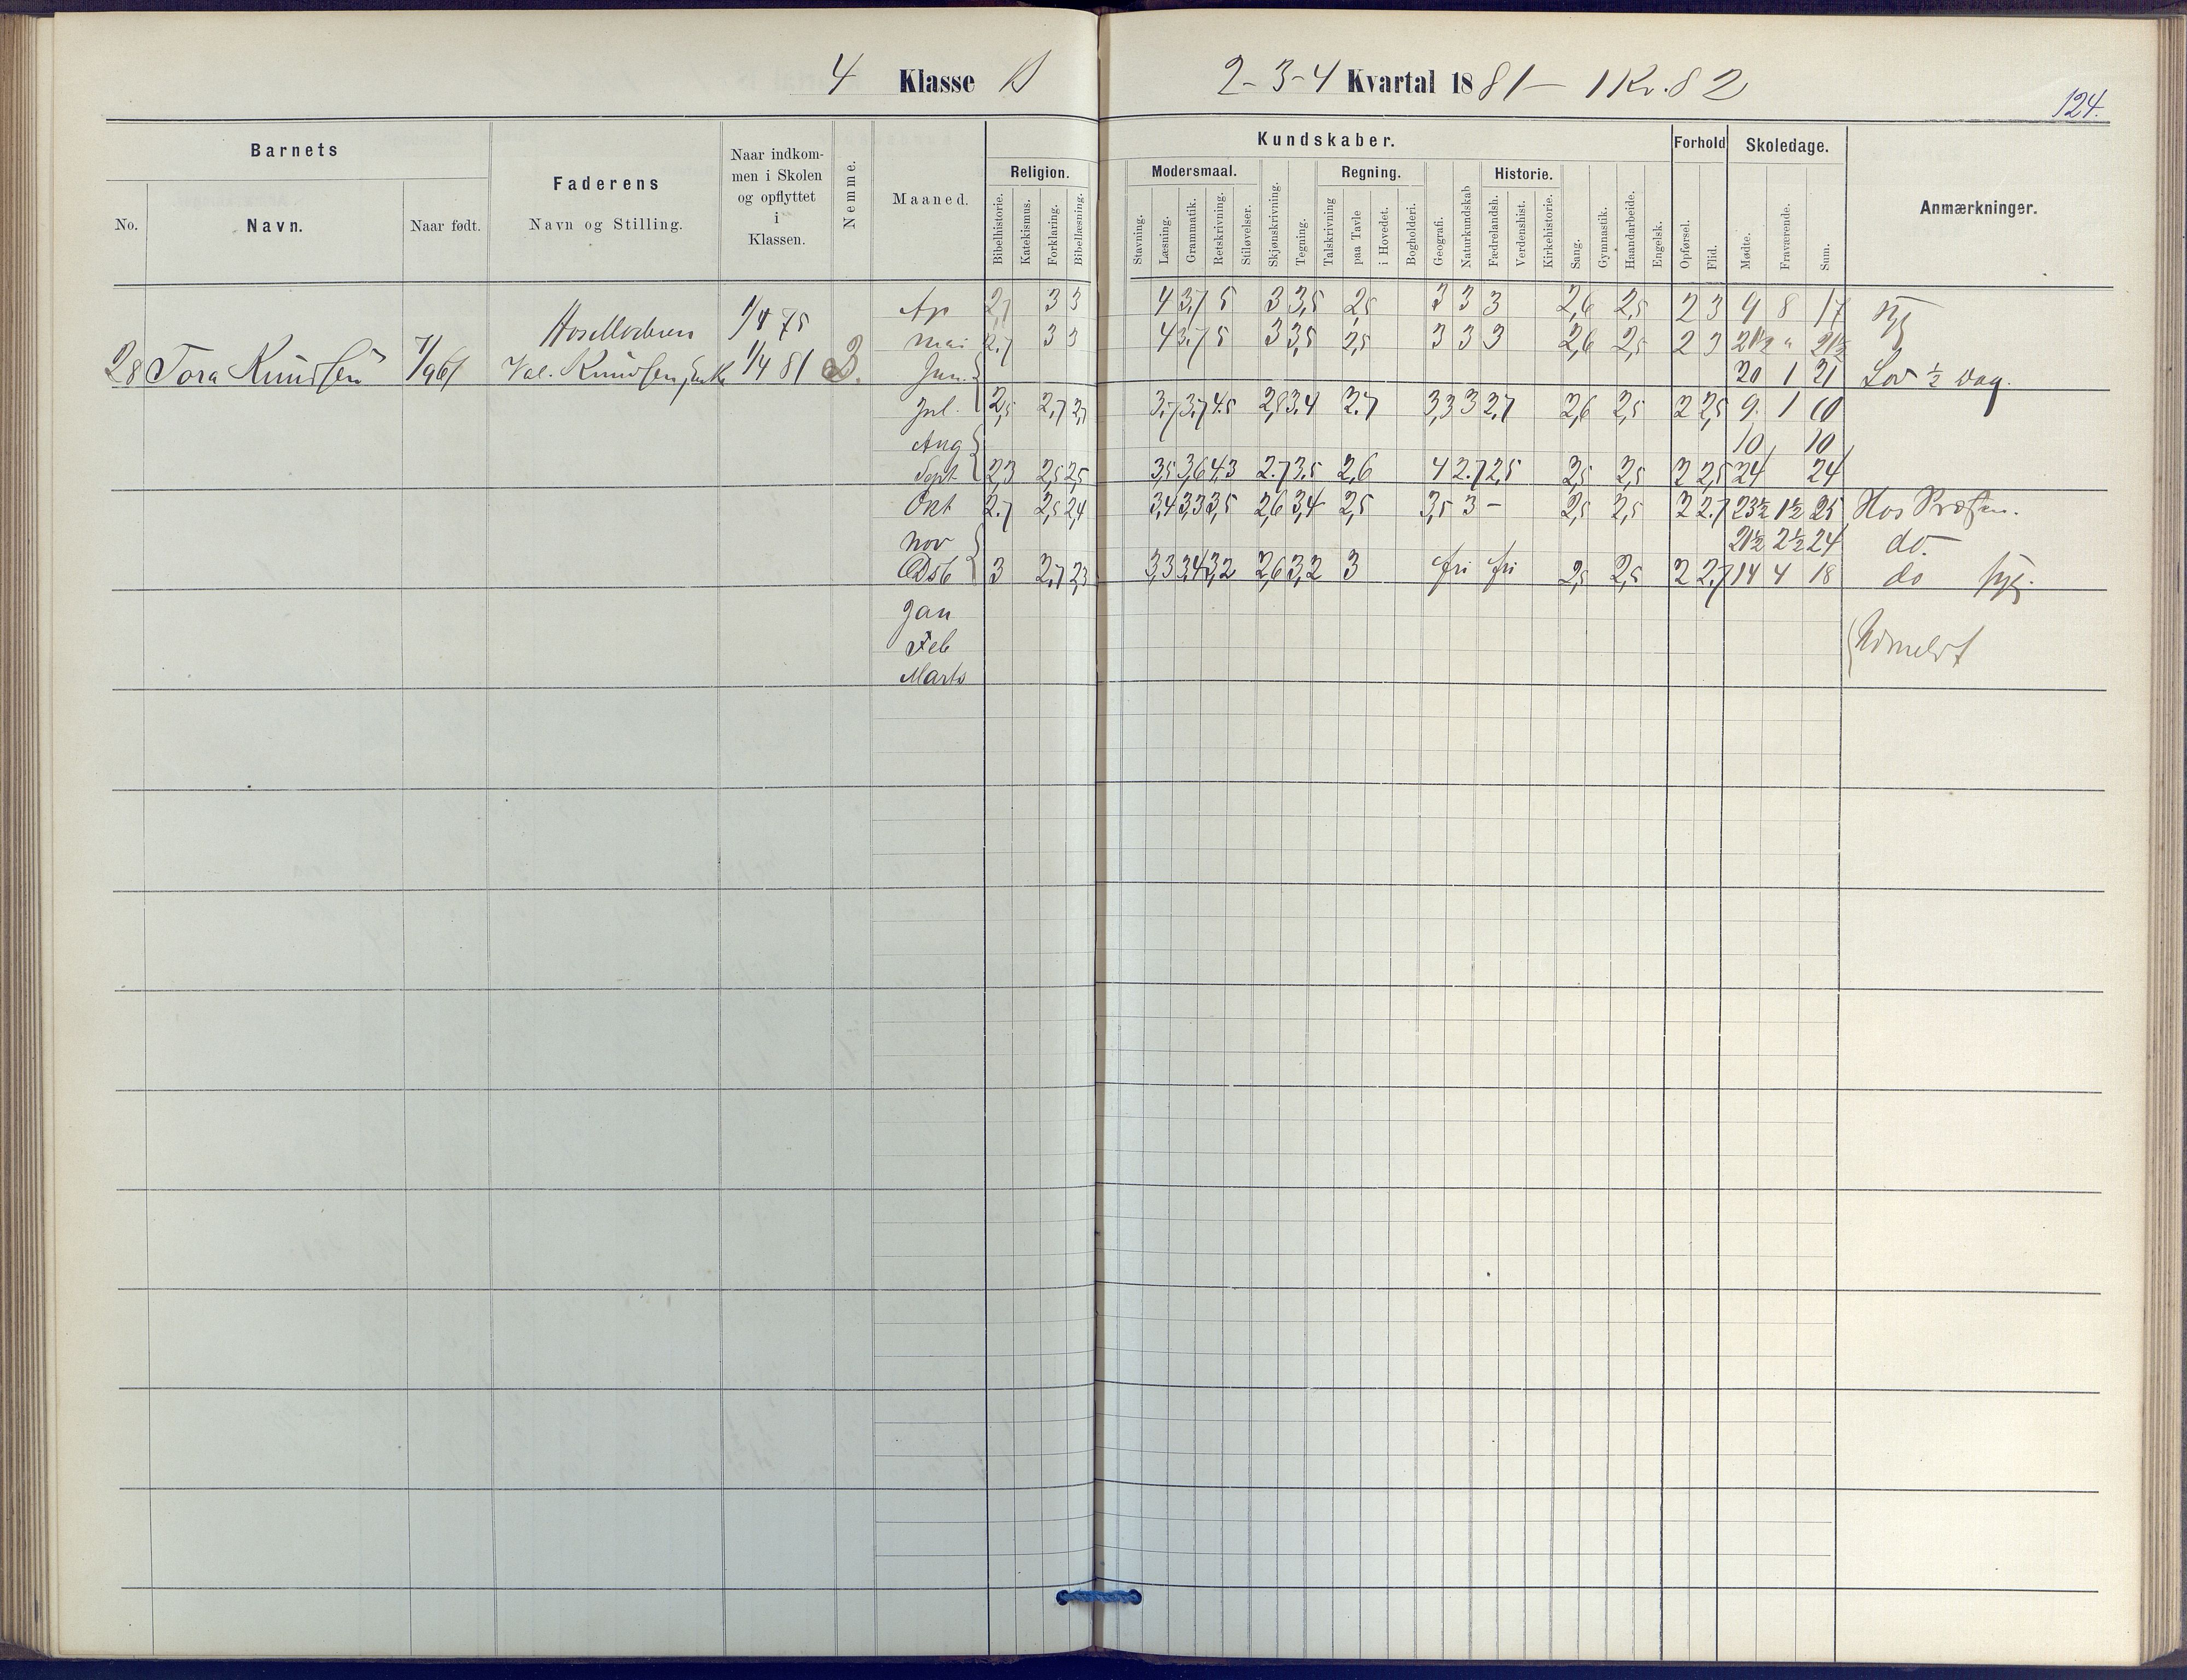 4 Klasse B
2-3-4 Kvartal 1881- 1 Kv. 82
124.
Barnets
No.
Navn.
Naar født.
Faderens
Navn og Stilling.
Naar indkom-
men i Skolen
og opflyttet
i
Klassen.
Nemme.
Maaned.
Kundskaber.
Religion.
Bibelhistorie.
Katekismus.
Forklaring.
Bibellæsning.
Modersmaal.
Stavning.
Læsning.
Grammatik.
Retskrivning.
Stiløvelser.
Skjønskrivning.
Tegning.
Regning.
Talskrivning
paa Tavle
i Hovedet.
Bogholderi.
Geografi.
Naturkundskab
Historie.
Fædrelandsh.
Verdenshist.
Kirkehistorie.
Sang.
Gymnastik.
Haandarbeide.
Engelsk.
Forhold
Opførsel.
Flid.
Skoledage.
Mødte.
Fraværende.
Sum.
Anmærkninger.
Hos Moderen 1/4 75
28 Tora Knudsen 7/9 67 Val. Knudsen, Enke 1/4 81 3.
Ap 2,7 3 3 4 3,7 5 3 3,5 2,5 3 3 3 2,6 2,5 2 3 9 8 17 syg
Mai 2.7 3 3 4 3.7 5 3 3,5 2,5 3 3 3 2,6 2,5 2 3 21½ " 21½
Jun. 20 1 21 Lov ½ Dag.
Jul. 2,5 2,7 2,7 3,7 3,7 4.5 2,8 3.4 2.7 3,3 3 2,7 2,6 2,5 2 2,5 9. 1 10
Aug 10 10
Sept. 2,3 2,5 2,5 3,5 3,6 4,3 2.7 3.5 2,6 4 2.7 2,5 2,5 2,5 2 2,5 24 24
Okt 2.7 2,5 2,4 3,4 3,3 3,5 2,6 3,4 2,5 3,5 3 - 2,5 2,5 2 2.7 23½ 1½ 25 Hos Præsten.
Nov 21½ 2½ 24 do.
Dsb 3 2,7 2,3 3,3 3,4 3,2 2,6 3,2 3 fri fri 2,5 2,5 2 2,7 14 4 18 do syg.
Jan
Feb
Marts
Udmeldt